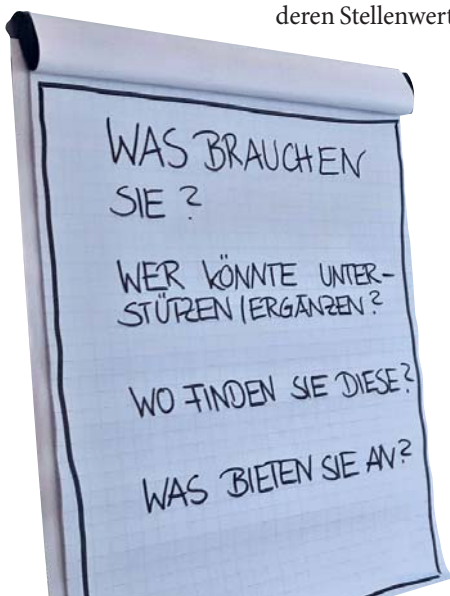 deren Stellenwert
WAS BRAUCHEN
SIE ?
WER KÖNNTE UNTER-
STÜTZEN / ERGÄNZEN ?
WO FINDEN SIE DIESE?
WAS BIETEN SIE AN?